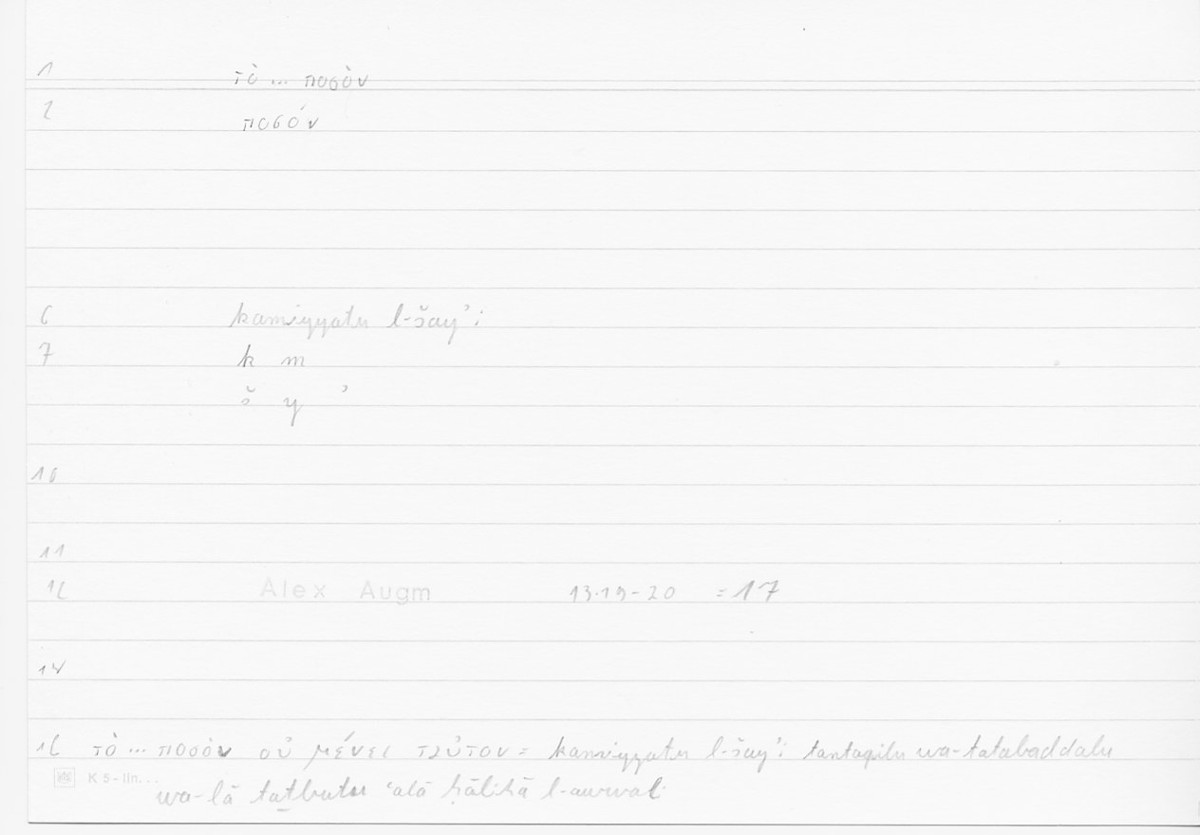 1 τὸ ... ποσὸν
2 ποσόν
6 kamiyyatu l-šayʾi
7 k m
š y ʾ
10
11
12 Alex Augm 13.19-20 = 17
14
16 τὸ ... ποσὸν οὐ μένει ταὐτον = kamiyyatu l-šayʾi tantaqilu wa-tatabaddalu
K 5 - lin...
wa-lā taṯbutu ʿalā ḥālihā l-awwali